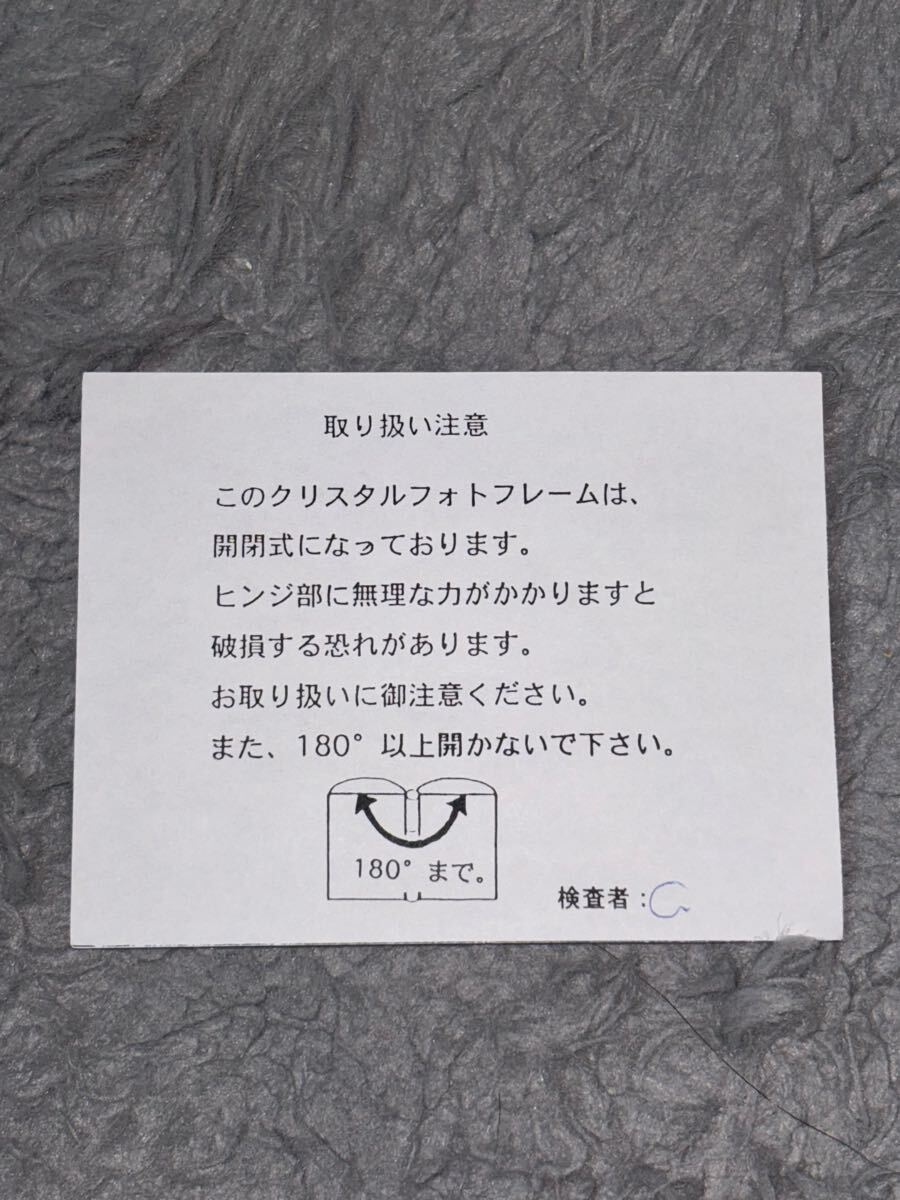 取り扱い注意
このクリスタルフォトフレームは、
開閉式になっております。
ヒンジ部に無理な力がかかりますと
破損する恐れがあります。
お取り扱いに御注意ください。
また、180°以上開かないで下さい。
180°まで。
検査者: